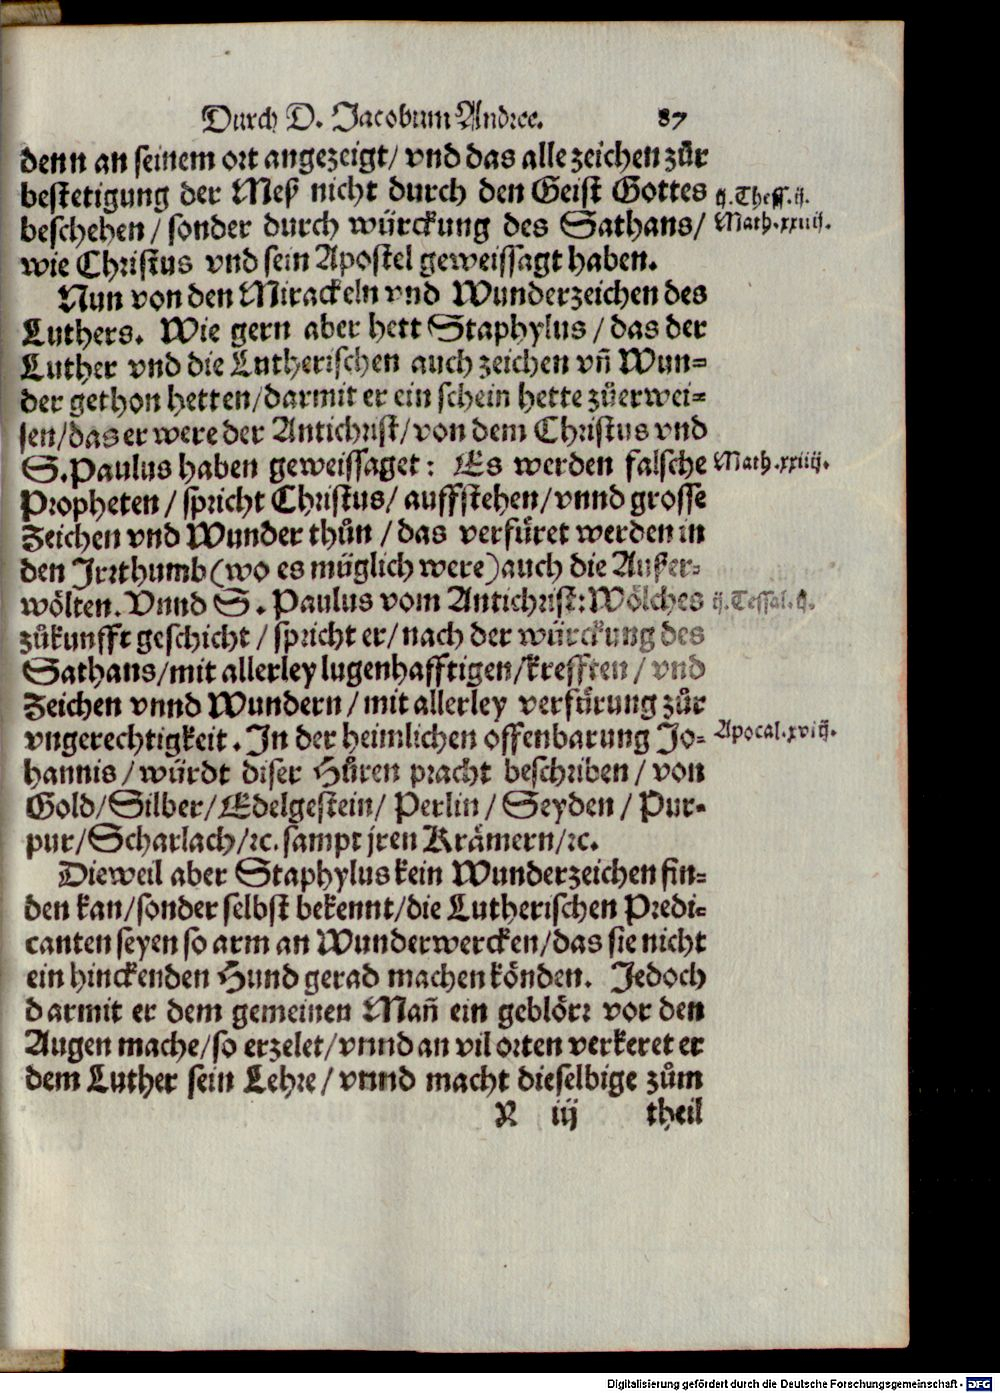 Durch D. Jacobum Andree. 87
denn an seinem ort angezeigt/ vnd das alle zeichen zůr
bestetigung der Meß nicht durch den Geist Gottes
ij. Thess. ij.
beschehen / sonder durch würckung des Sathans/
Math. xxiiij.
wie Christus vnd sein Apostel geweissagt haben.
Nun von den Mirackeln vnd Wunderzeichen des
Luthers. Wie gern aber hett Staphylus / das der
Luther vnd die Lutherischen auch zeichen vñ Wun=
der gethon hetten/darmit er ein schein hette zůerwei=
sen/das er were der Antichrist/von dem Christus vnd
S. Paulus haben geweissaget: Es werden falsche
Math. xxiiij.
Propheten / spricht Christus/ auffstehen/vnnd grosse
Zeichen vnd Wunder thůn / das verfüret werden in
den Jrrthumb (wo es müglich were) auch die Außer=
wölten. Vnnd S. Paulus vom Antichrist: Wölches
ij. Tessal. ij.
zůkunfft geschicht / spricht er/ nach der würckung des
Sathans/mit allerley lugenhafftigen/krefften / vnd
Zeichen vnnd Wundern / mit allerley verfürung zůr
vngerechtigkeit. Jn der heimlichen offenbarung Jo=
Apocal. xviij.
hannis / würdt diser Hůren pracht beschriben / von
Gold/Silber/Edelgestein/ Perlin / Seyden / Pur=
pur/Scharlach/ꝛc. sampt jren Krämern/ꝛc.
Dieweil aber Staphylus kein Wunderzeichen fin=
den kan/sonder selbst bekennt/die Lutherischen Predi=
canten seyen so arm an Wunderwercken/das sie nicht
ein hinckenden Hund gerad machen könden. Jedoch
darmit er dem gemeinen Mañ ein geblörr vor den
Augen mache/so erzelet/vnnd an vil orten verkeret er
dem Luther sein Lehre / vnnd macht dieselbige zům
iij theil
Digitalisierung gefördert durch die Deutsche Forschungsgemeinschaft - DFG